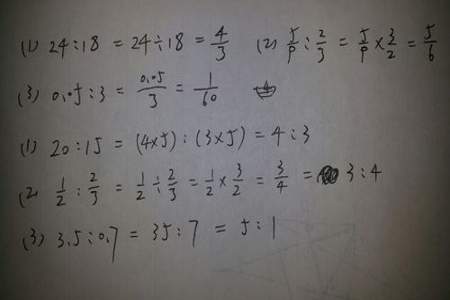 (1) 24:18 = 24÷18 = 4/3 (2) 5/9 : 2/3 = 5/9 × 3/2 = 5/6
(3) 0.05:3 = 0.05/3 = 1/60
(1) 20:15 = (4×5):(3×5) = 4:3
(2) 1/2 : 2/3 = 1/2 ÷ 2/3 = 1/2 × 3/2 = 3/4 = 3:4
(3) 3.5:0.7 = 35:7 = 5:1